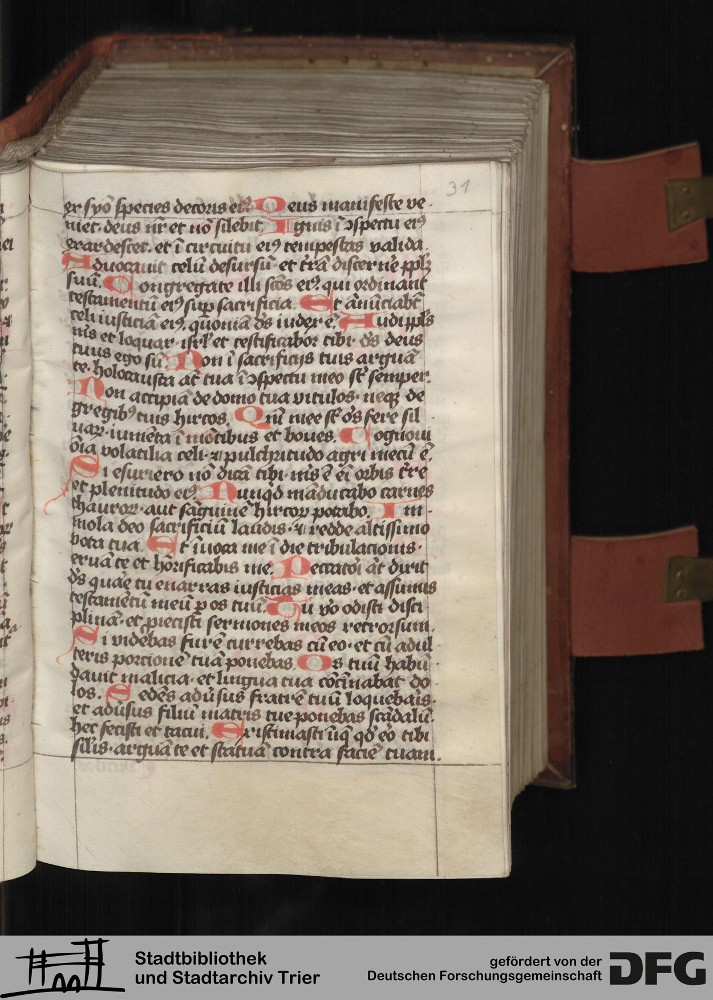 31
ex syō species decoris eiꝰ. Deus manifeste ve
niet. deus nr̄ et nō silebit. Ignis ī ꝯspectu eiꝰ
exardescet. et ī circuitu eiꝰ tempestas valida.
Aduocauit celū desursū. et tr̄ā discerne̅ pplm̄
suū. Congregate illi scōs eiꝰ. qui ordinant
testamentū eiꝰ sup̄ sacrificia. Et ānūciabt̄
celi iusticiā eiꝰ. quoniā ds̄ iudex ē. Audi ppls̄
mꝰ et loquar. isrl̄ et testificabor tibi. ds̄ deus
tuus ego sū. Non ī sacrificijs tuis arguā
te. holocausta at̄ tua ī ꝯspectu meo st̄ semper.
Non accipiā de domo tua vitulos. neqꝫ de
gregibꝰ tuis hircos. Qm̄ mee st̄ ōs fere sil
uaꝝ. iumēta ī mōtibus et boues. Cognoui
ōia volatilia celi. et pulchritudo agri mecū ē.
Si esuriero nō dicā tibi. mꝰ ē eī orbis tr̄e
et plenitudo eiꝰ. Nunqd māducabo carnes
thauroꝝ. aut sāguinē hircoꝝ potabo. Im
mola deo sacrificiū laudis. et redde altissimo
vota tua. Et īuoca me ī die tribulacionis.
eruā te et honorificabis me. Peccatoi at̄ dixit
ds̄ quare tu enarras iusticias meas. et assumis
testamētū meū ꝑ os tuū. Tu vo odisti disci
plinā. et proiecisti sermones meos retrorsum.
Si videbas furē currebas cū eo. et cū adul
teris porcionē tuā ponebas. Os tuū habū
dauit malicia. et lingua tua cōcīnabat do
los. Sedēs adūsus fratrē tuū loquebaris.
et adūsus filiū matris tue ponebas scādalū.
hec fecisti et tacui. Existimasti iīq qd̄ ero tibi
silis. arguā te et statuā contra faciē tuam.
Stadtbibliothek
und Stadtarchiv Trier
gefördert von der
Deutschen Forschungsgemeinschaft
DFG